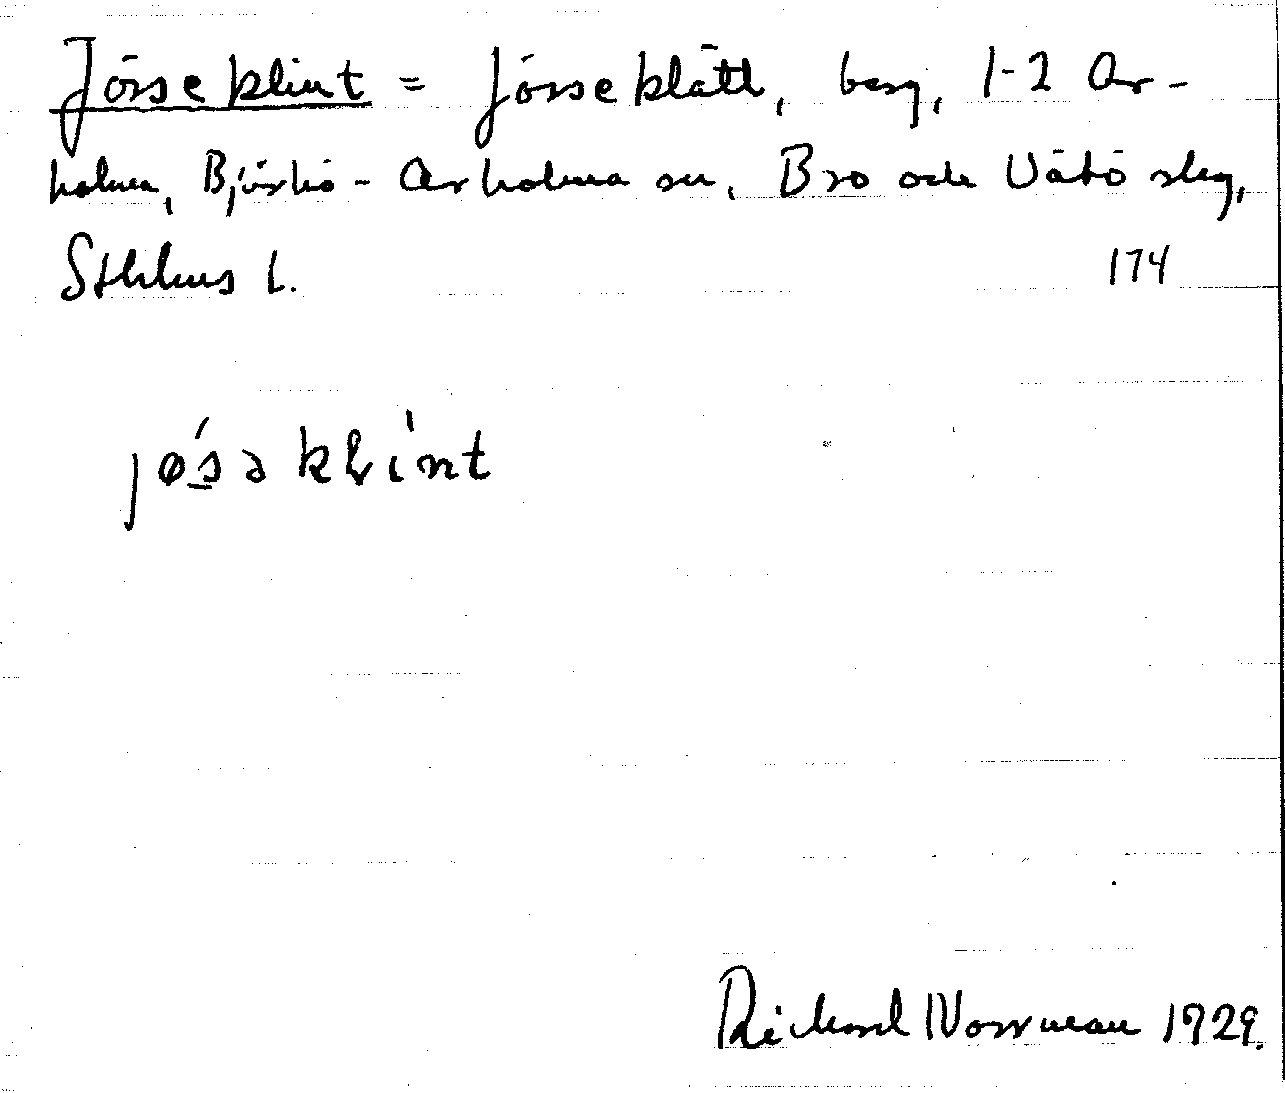 Jösseklint = Jösseklätt, berg, 1-2 Ar-
holma, Björkö-Arholma sn, Bro och Vätö slg,
Sthlms l. 174
jøśəklìnt
Richard Norrman 1929.